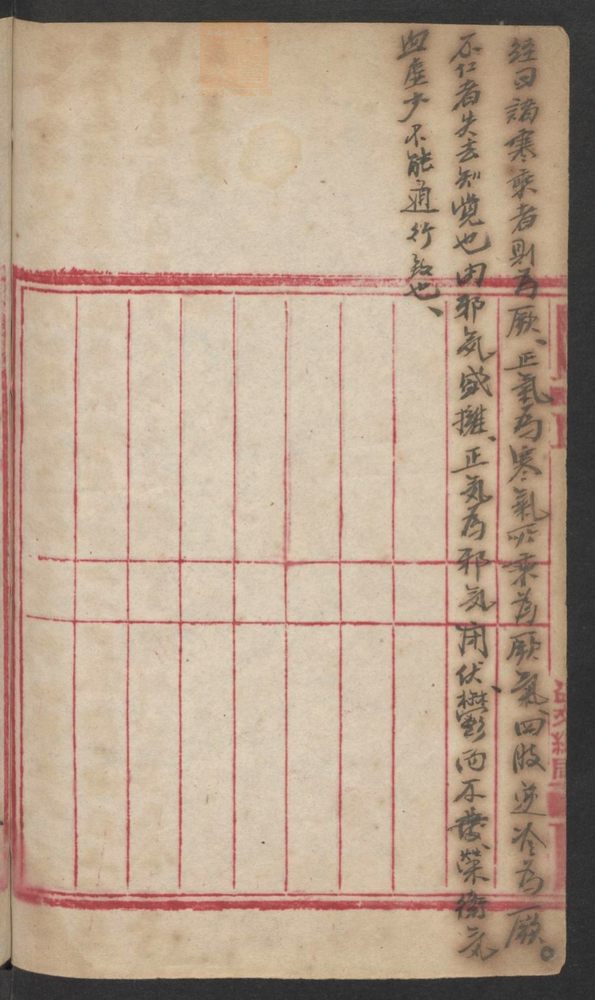 經曰諸寒乘者則為厥、正氣為寒氣所乘為厥氣、四肢逆冷為厥。
不仁者失去知覺也因邪気盛擁、正気為邪気闭伏、欝而不發、榮衛気
血虛少不能通行致也、